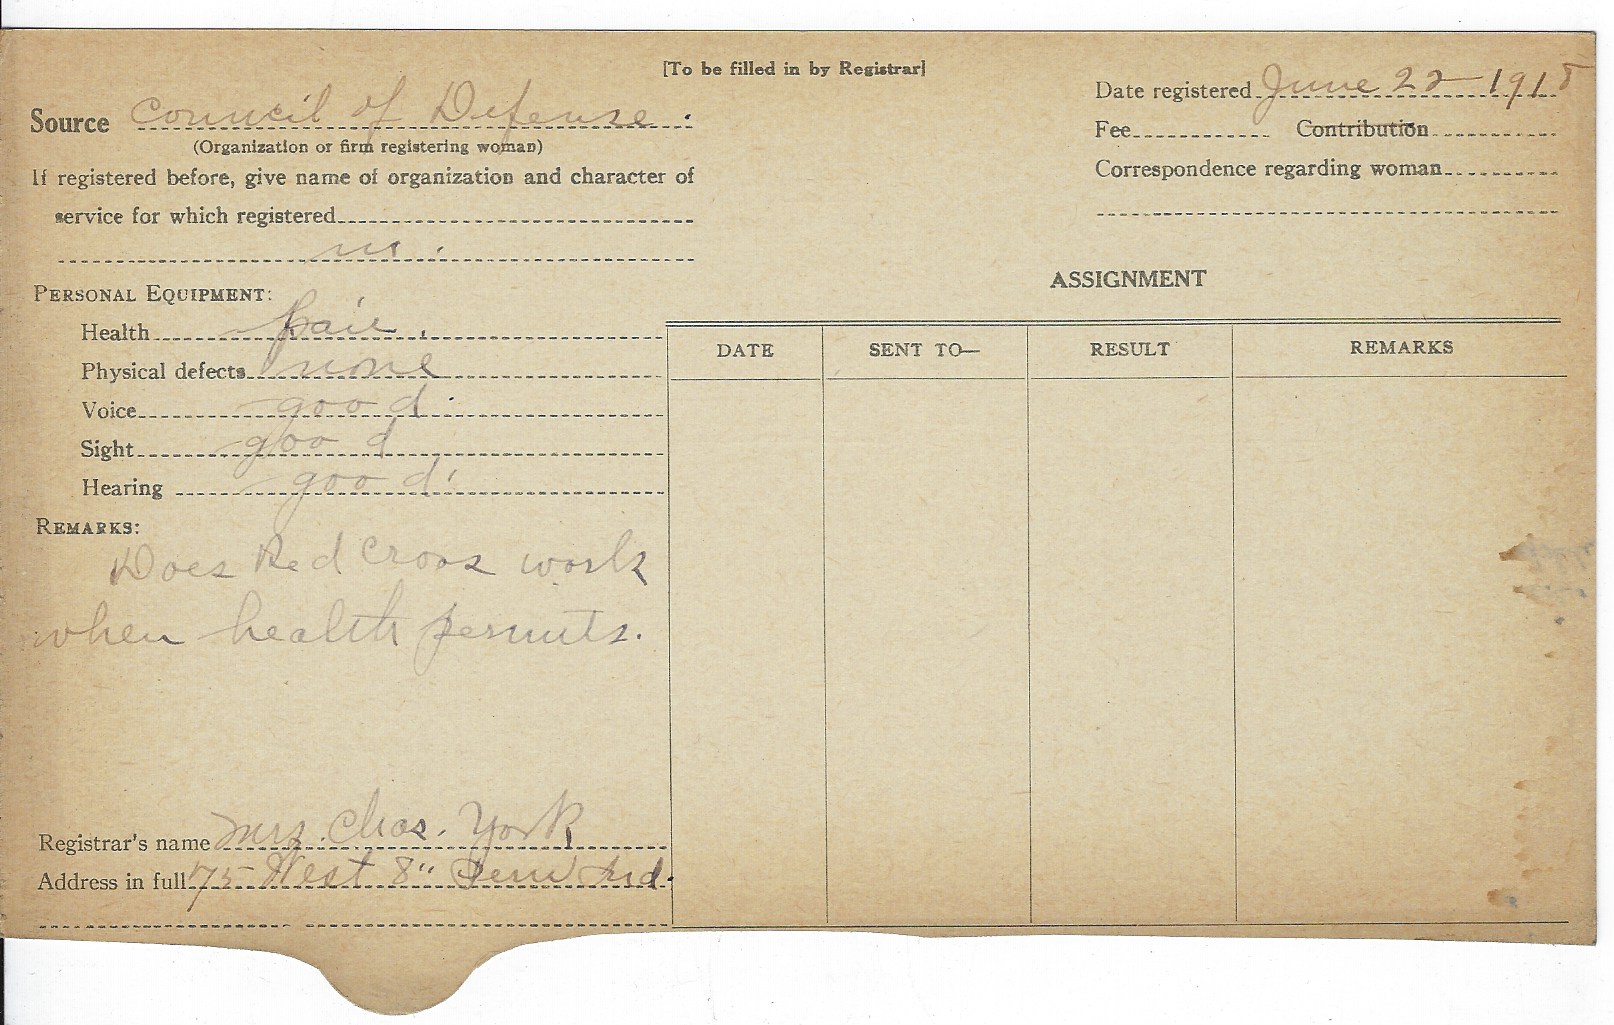 [To be filled in by Registrar]
Source Council of Defense.
(Organization or firm registering woman)
If registered before, give name of organization and character of
service for which registered
no.
Date registered June 22-1918
Fee Contribution
Correspondence regarding woman
PERSONAL EQUIPMENT:
Health fair.
Physical defects none
Voice good.
Sight good
Hearing good.
REMARKS:
Does Red Cross work
when health permits.
Registrar's name Mrs. Chas. York
Address in full 75 West 8" Peru Ind.
ASSIGNMENT
DATE SENT TO— RESULT REMARKS